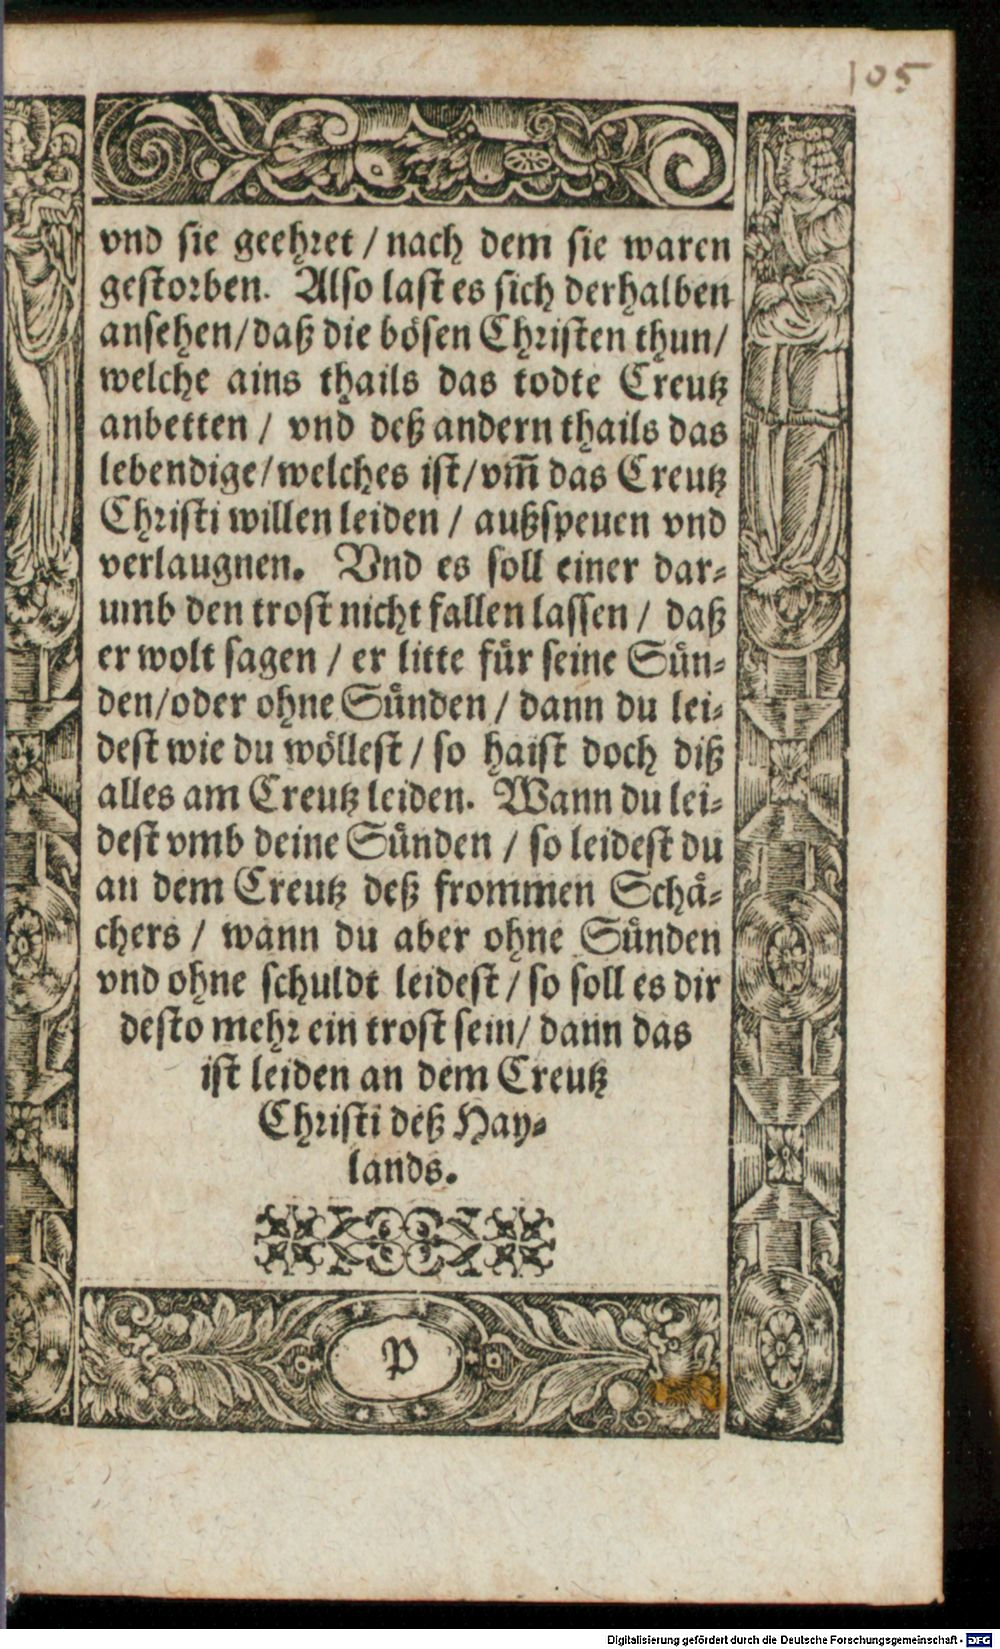 105
vnd sie geehret / nach dem sie waren
gestorben. Also last es sich derhalben
ansehen/daß die bösen Christen thun/
welche ains thails das todte Creutz
anbetten / vnd deß andern thails das
lebendige/welches ist/vm̃ das Creutz
Christi willen leiden / außspeuen vnd
verlaugnen. Vnd es soll einer dar-
umb den trost nicht fallen lassen / daß
er wolt sagen / er litte für seine Sün-
den/oder ohne Sünden / dann du lei-
dest wie du wöllest / so haist doch diß
alles am Creutz leiden. Wann du lei-
dest vmb deine Sünden / so leidest du
an dem Creutz deß frommen Schä-
chers / wann du aber ohne Sünden
vnd ohne schuldt leidest / so soll es dir
desto mehr ein trost sein/ dann das
ist leiden an dem Creutz
Christi deß Hay-
lands.
P
Digitalisierung gefördert durch die Deutsche Forschungsgemeinschaft - DFG